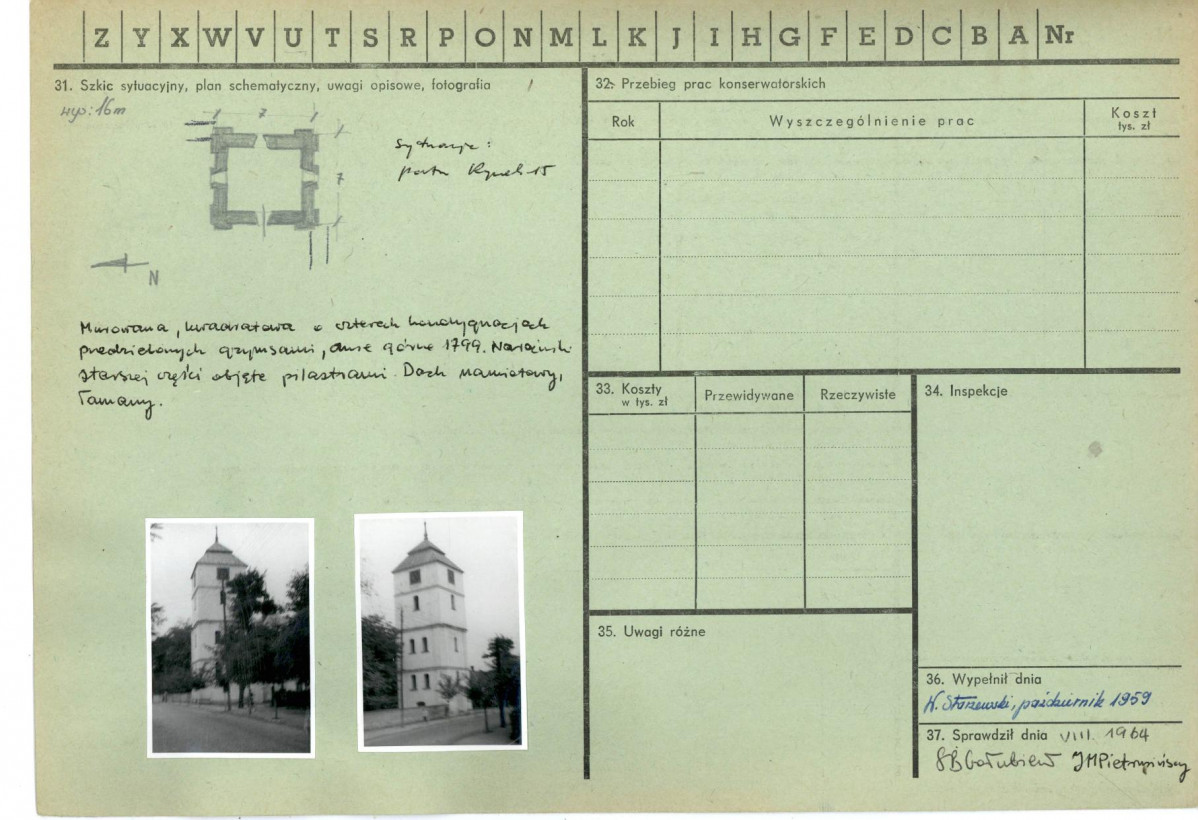 Z Y X W V U T S R P O N M L K J I H G F E D C B A Nr
31. Szkic sytuacyjny, plan schematyczny, uwagi opisowe, fotografia
wys: 16m
7
7
sytuacja:
patrz Rynek 15
N
Murowana, kwadratowa o czterech kondygnacjach
przedzielonych gzymsami, dwie górne 1799. Narożniki
starszej części objęte pilastrami. Dach namiotowy,
łamany.
32. Przebieg prac konserwatorskich
Rok
Wyszczególnienie prac
Koszt
tys. zł
33. Koszty
w tys. zł
Przewidywane
Rzeczywiste
34. Inspekcje
35. Uwagi różne
36. Wypełnił dnia
październik 1959
37. Sprawdził dnia VIII. 1964